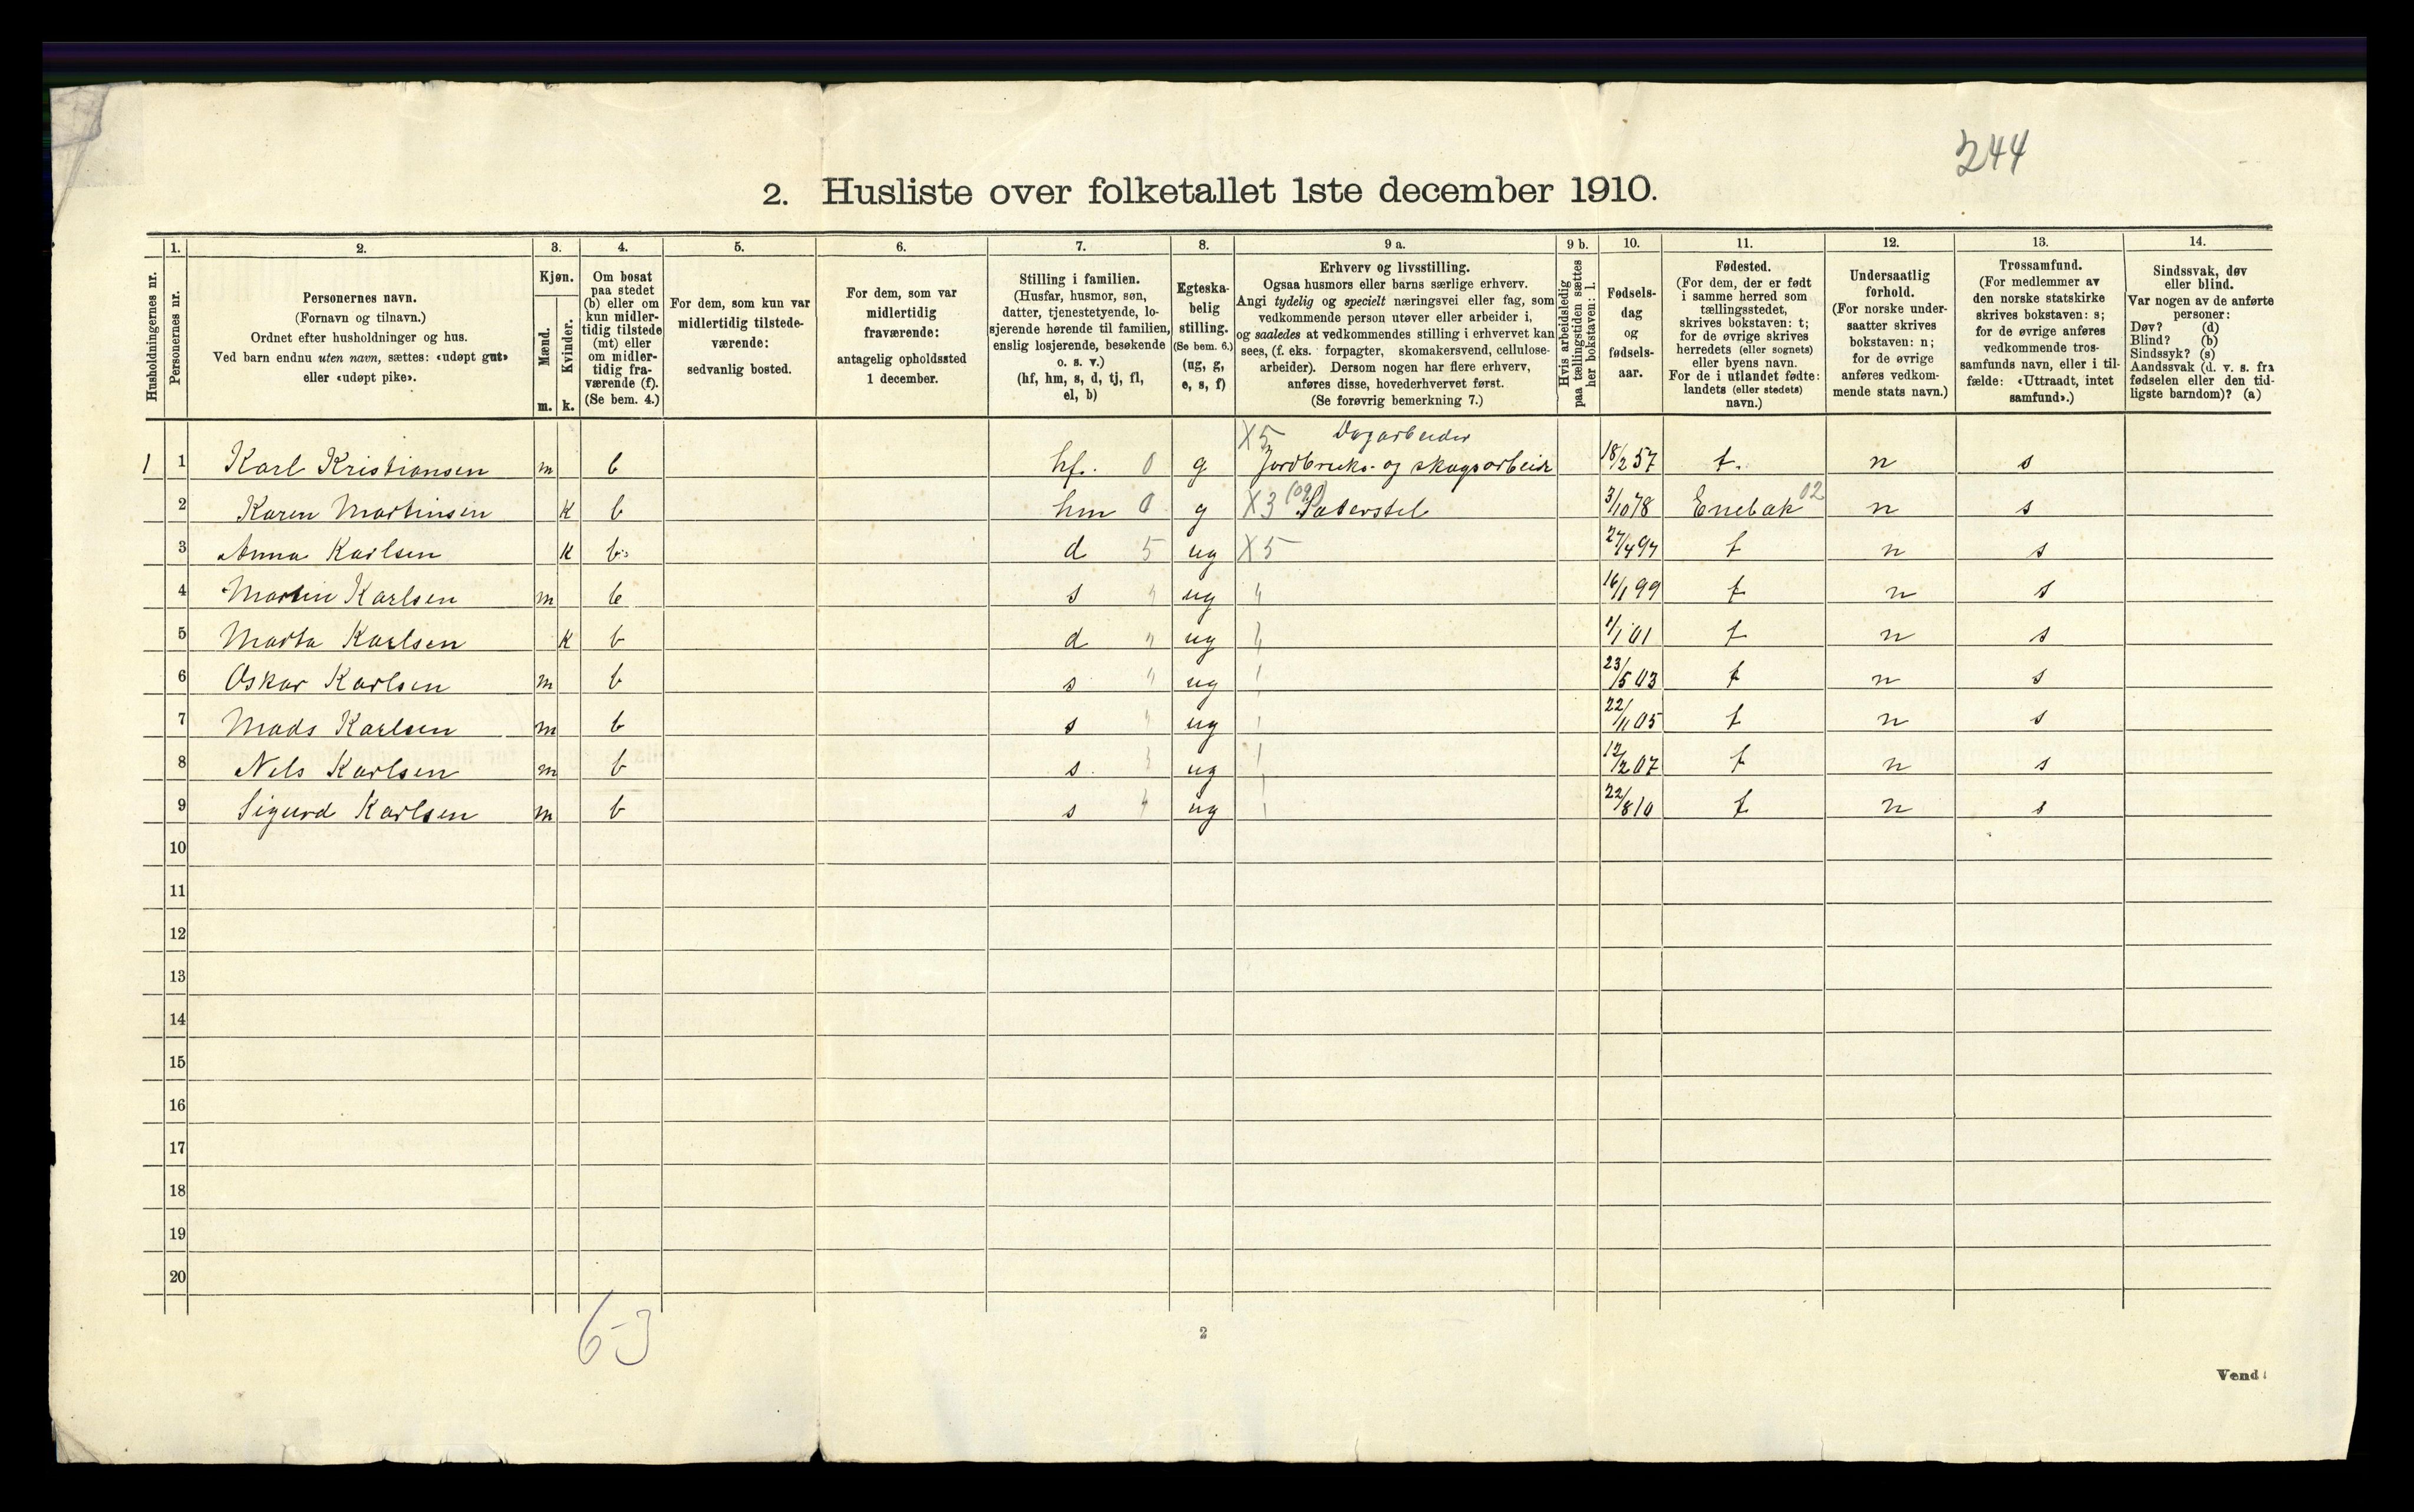 244
2. Husliste over folketallet 1ste december 1910.
Husholdningernes nr.
1.
Personernes nr.
2.
Personernes navn.
(Fornavn og tilnavn.)
Ordnet efter husholdninger og hus.
Ved barn endnu uten navn, sættes: «udøpt gut»
eller «udøpt pike».
3.
Kjøn.
Mænd.
m.
Kvinder.
k.
4.
Om bosat
paa stedet
(b) eller om
kun midler-
tidig tilstede
(mt) eller
om midler-
tidig fra-
værende (f).
(Se bem. 4.)
5.
For dem, som kun var
midlertidig tilstede-
værende:
sedvanlig bosted.
6.
For dem, som var
midlertidig
fraværende:
antagelig opholdssted
1 december.
7.
Stilling i familien.
(Husfar, husmor, søn,
datter, tjenestetyende, lo-
sjerende hørende til familien,
enslig losjerende, besøkende
o. s. v.)
(hf, hm, s, d, tj, fl,
el, b)
8.
Egteska-
belig
stilling.
(Se bem. 6.)
(ug, g,
e, s, f)
9 a.
Erhverv og livsstilling.
Ogsaa husmors eller barns særlige erhverv.
Angi tydelig og specielt næringsvei eller fag, som
vedkommende person utøver eller arbeider i,
og saaledes at vedkommendes stilling i erhvervet kan
sees, (f. eks. forpagter, skomakersvend, cellulose-
arbeider). Dersom nogen har flere erhverv,
anføres disse, hovederhvervet først.
(Se forøvrig bemerkning 7.)
9 b.
Hvis arbeidsledig
paa tællingstiden sættes
her bokstaven: l.
10.
Fødsels-
dag
og
fødsels-
aar.
11.
Fødested.
(For dem, der er født
i samme herred som
tællingsstedet,
skrives bokstaven: t;
for de øvrige skrives
herredets (eller sognets)
eller byens navn.
For de i utlandet fødte:
landets (eller stedets)
navn.)
12.
Undersaatlig
forhold.
(For norske under-
saatter skrives
bokstaven: n;
for de øvrige
anføres vedkom-
mende stats navn.)
13.
Trossamfund.
(For medlemmer av
den norske statskirke
skrives bokstaven: s;
for de øvrige anføres
vedkommende tros-
samfunds navn, eller i til-
fælde: «Uttraadt, intet
samfund».)
14.
Sindssvak, døv
eller blind.
Var nogen av de anførte
personer:
Døv? (d)
Blind? (b)
Sindssyk? (s)
Aandssvak (d. v. s. fra
fødselen eller den tid-
ligste barndom)? (a)
X5 Dagarbeider
1 1 Karl Kristiansen m b hf. 0 g Jordbruks- og skogsarbeide 18/2 57 t. n s
2 Karen Martinsen k b hm 0 g X3 (og) Saterstel 3/10 78 Enebak 02 n s
3 Anna Karlsen k b d 5 ug X5 27/4 97 t n s
4 Martin Karlsen m b s " ug " 16/1 99 t n s
5 Marta Karlsen k b d " ug " 1/1 01 t n s
6 Oskar Karlsen m b s " ug " 23/5 03 t n s
7 Mads Karlsen m b s " ug " 22/11 05 t n s
8 Nils Karlsen m b s " ug " 12/2 07 t n s
9 Sigurd Karlsen m b s " ug " 22/8 10 t n s
10
11
12
13
14
15
16
17
18
19
20
6-3
2
Vend!